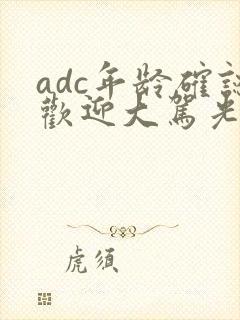 adc年龄確認
歡迎大駕光
虎須